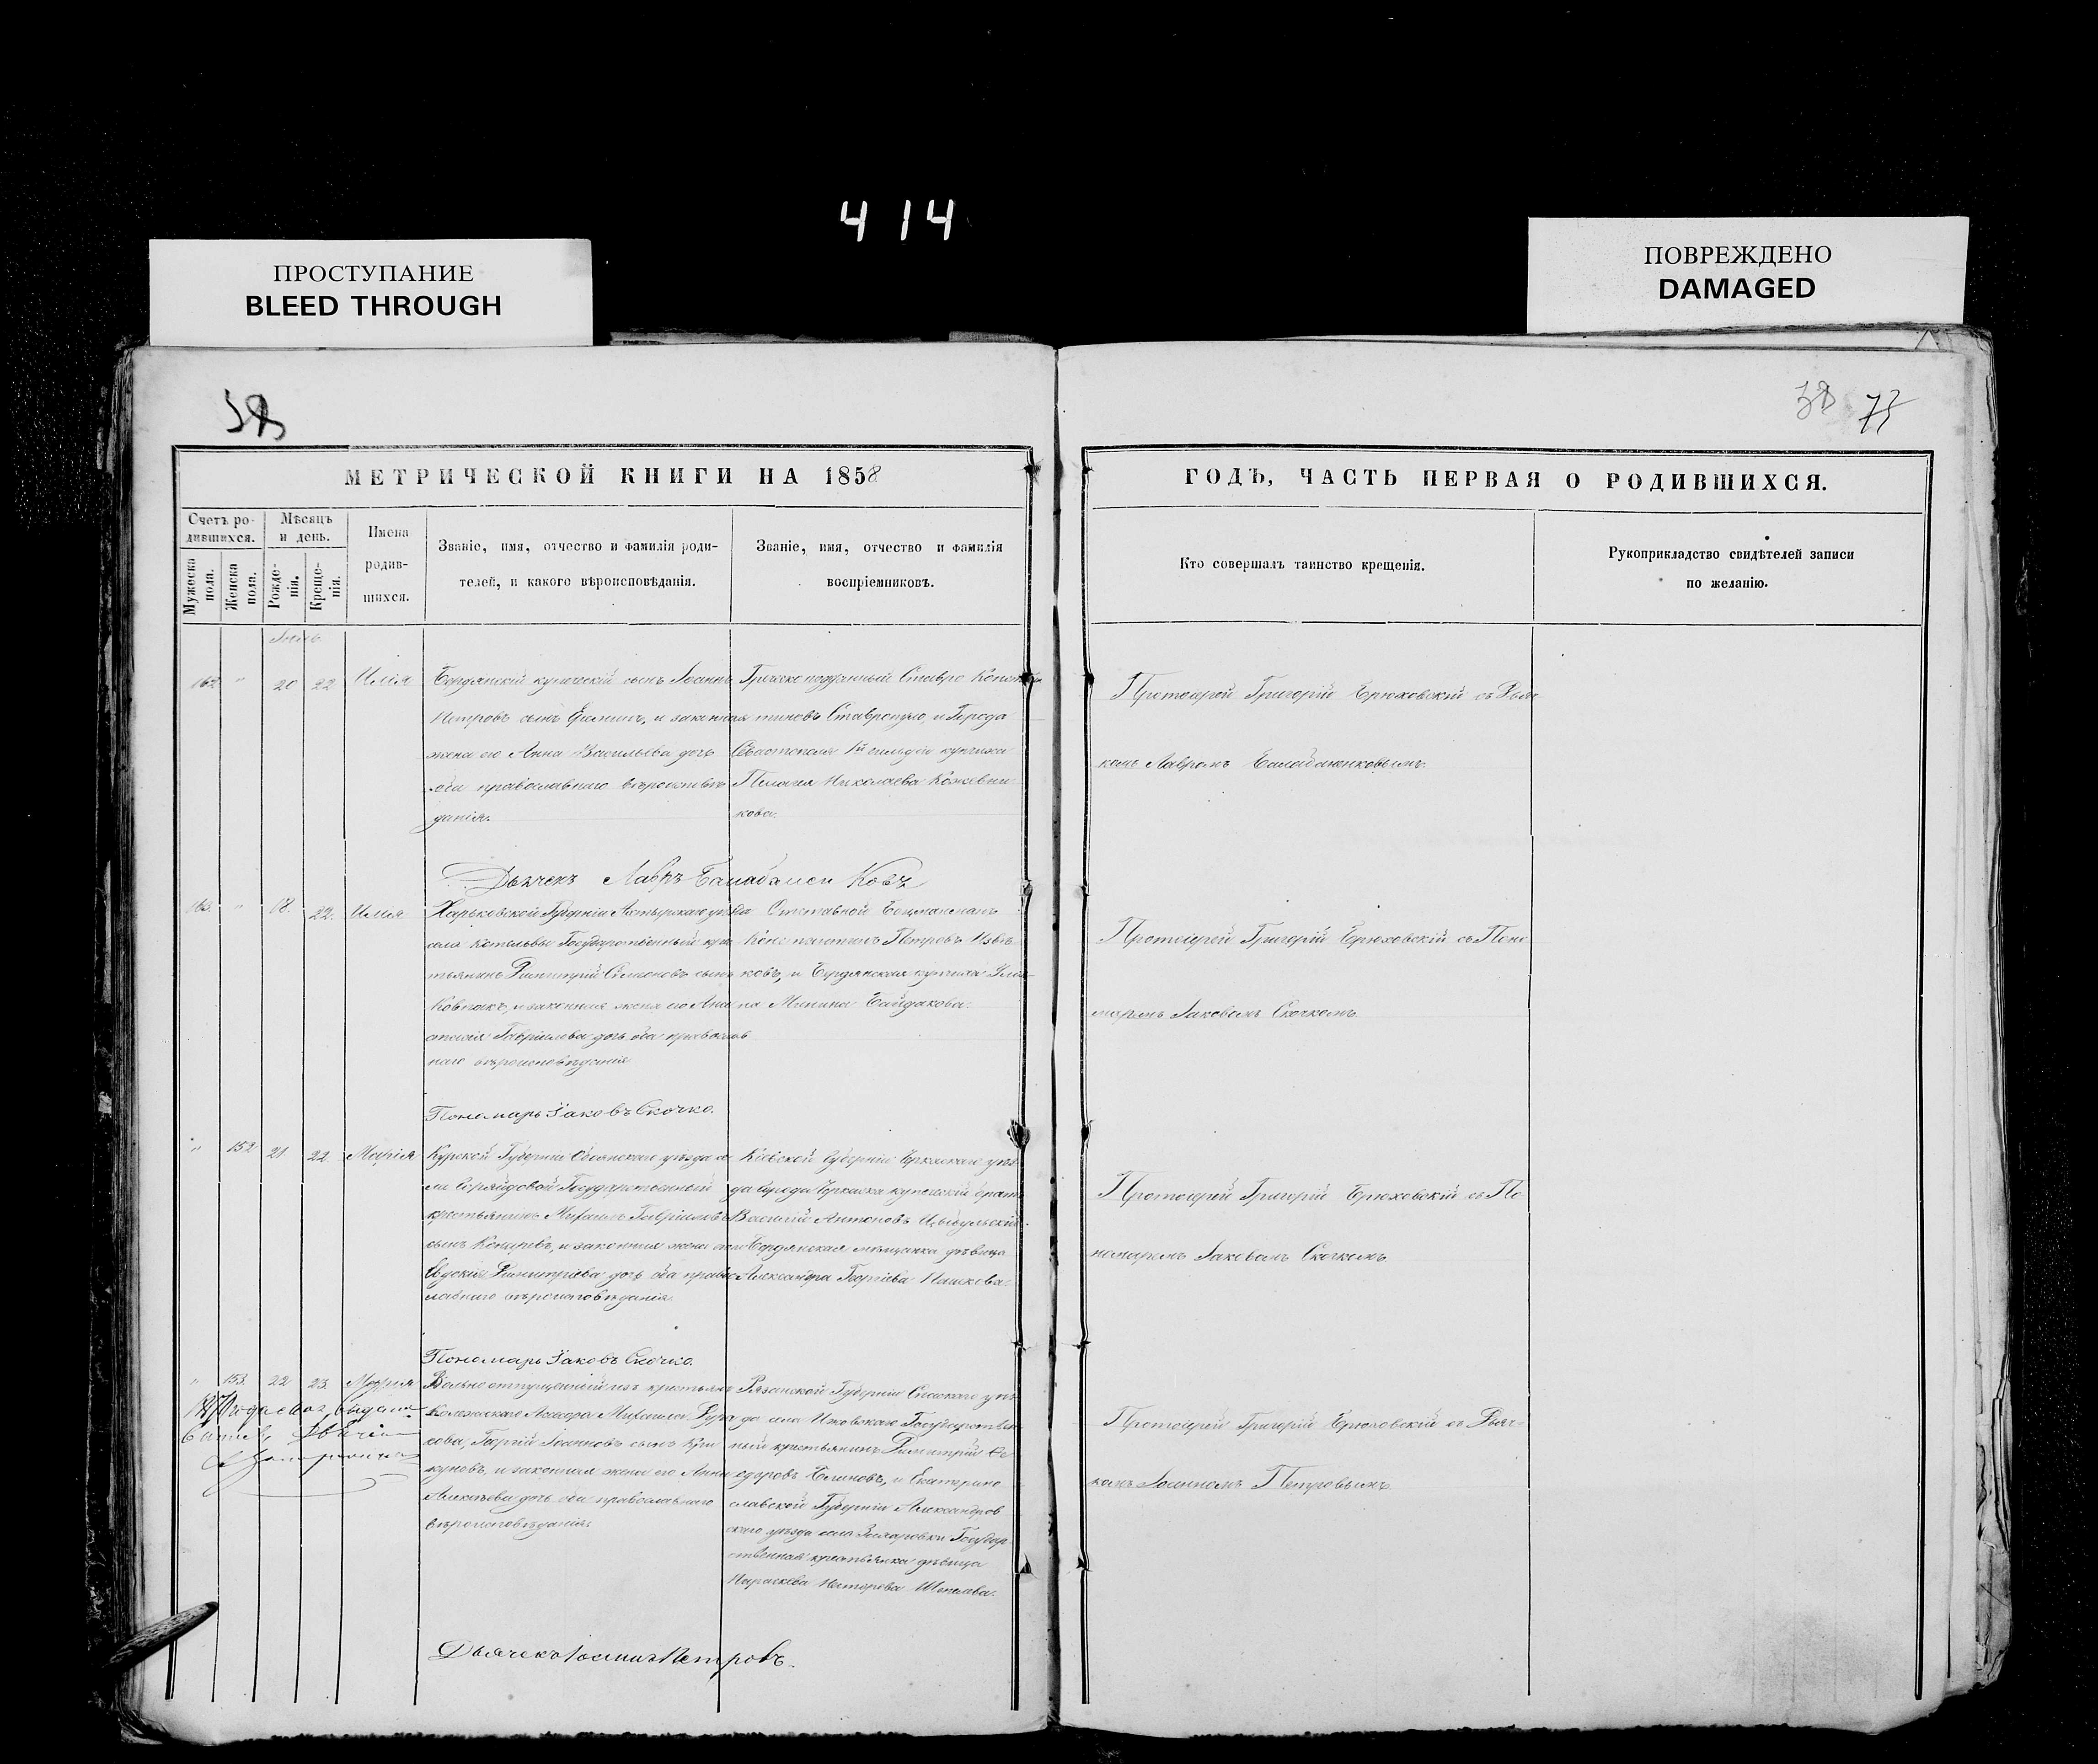 414
ПРОСТУПАНИЕ
BLEED THROUGH
ПОВРЕЖДЕНО
DAMAGED
38
38 73
МЕТРИЧЕСКОЙ КНИГИ НА 1858
ГОДЪ, ЧАСТЬ ПЕРВАЯ О РОДИВШИХСЯ.
Счетъ ро-
дившихся.
Мужеска
пола.
Женска
пола.
Мѣсяцъ
и день.
Рожде-
нія.
Креще-
нія.
Имена
родив-
шихся.
Званіе, имя, отчество и фамилія роди-
телей, и какого вѣроисповѣданія.
Званіе, имя, отчество и фамилія
воспріемниковъ.
Кто совершалъ таинство крещенія.
Рукоприкладство свидѣтелей записи
по желанію.
162 " 20 22 Илія
Бердянскій купеческій сынъ Іоаннъ
Петровъ сынъ и законная
жена его Анна Васильева дочь
оба православнаго вѣроисповѣ
данія.
Греческоподданный Ставро Констан
тиновъ Ставропуло, и Города
Севастополя купчиха
Пелагія Николаева Кожевни
кова.
Протоіерей Григорій Брюховскій съ Дьяч
комъ Лавромъ Балабаненковымъ.
Дьячекъ Лавръ
163. " 18. 22. Илія
Харьковской Губерніи Ахтырскаго уѣзда
села Котельвы Государственный крес
тьянинъ Димитрій Симеоновъ сынъ
Ковпакъ, и законная жена его Ана
стасія Гавріилова дочь оба православ
наго вѣроисповѣданія
Отставной Боцманматъ
Константинъ Петровъ
ковъ, и Бердянская купчиха
на Минина Байдакова.
Протоіерей Григорій Брюховскій съ Поно
маремъ Іаковомъ Скочкомъ.
Пономарь Іаковъ Скочко.
" 152 21 22 Марія
Курской Губерніи Обоянскаго уѣзда се
ла Государственный
крестьянинъ Михаилъ Гавріиловъ
сынъ и законная жена его
Евдокія Димитріева дочь оба право
славнаго вѣроисповѣданія.
Кіевской Губерніи Черкаскаго уѣз
да Города Черкаска купеческій братъ
Василій Антоновъ Цыбульскій
Бердянская мѣщанка дѣвица
Александра Георгіева Пашкова.
Протоіерей Григорій Брюховскій съ По
номаремъ Іаковомъ Скочкомъ.
Пономарь Іаковъ Скочко.
" 153. 22 23. Марія
Вольноотпущенный изъ крестьянъ
Колежскаго Ассесора Михаила
Георгій Іоанновъ сынъ
и законная жена его Анна
Алексѣева дочь оба православнаго
вѣроисповѣданія.
Рязанской Губерніи Спаскаго уѣз
да села Ижевскаго Государствен
ный крестьянинъ Димитрій
Блиновъ, и Екатерино
славской Губерніи Александров
скаго уѣзда села Государ
ственная крестьянка дѣвица
Параскева Нестерова
Протоіерей Григорій Брюховскій съ Дьяч
комъ Іоанномъ Петровымъ.
Дьячекъ Іоаннъ Петровъ.